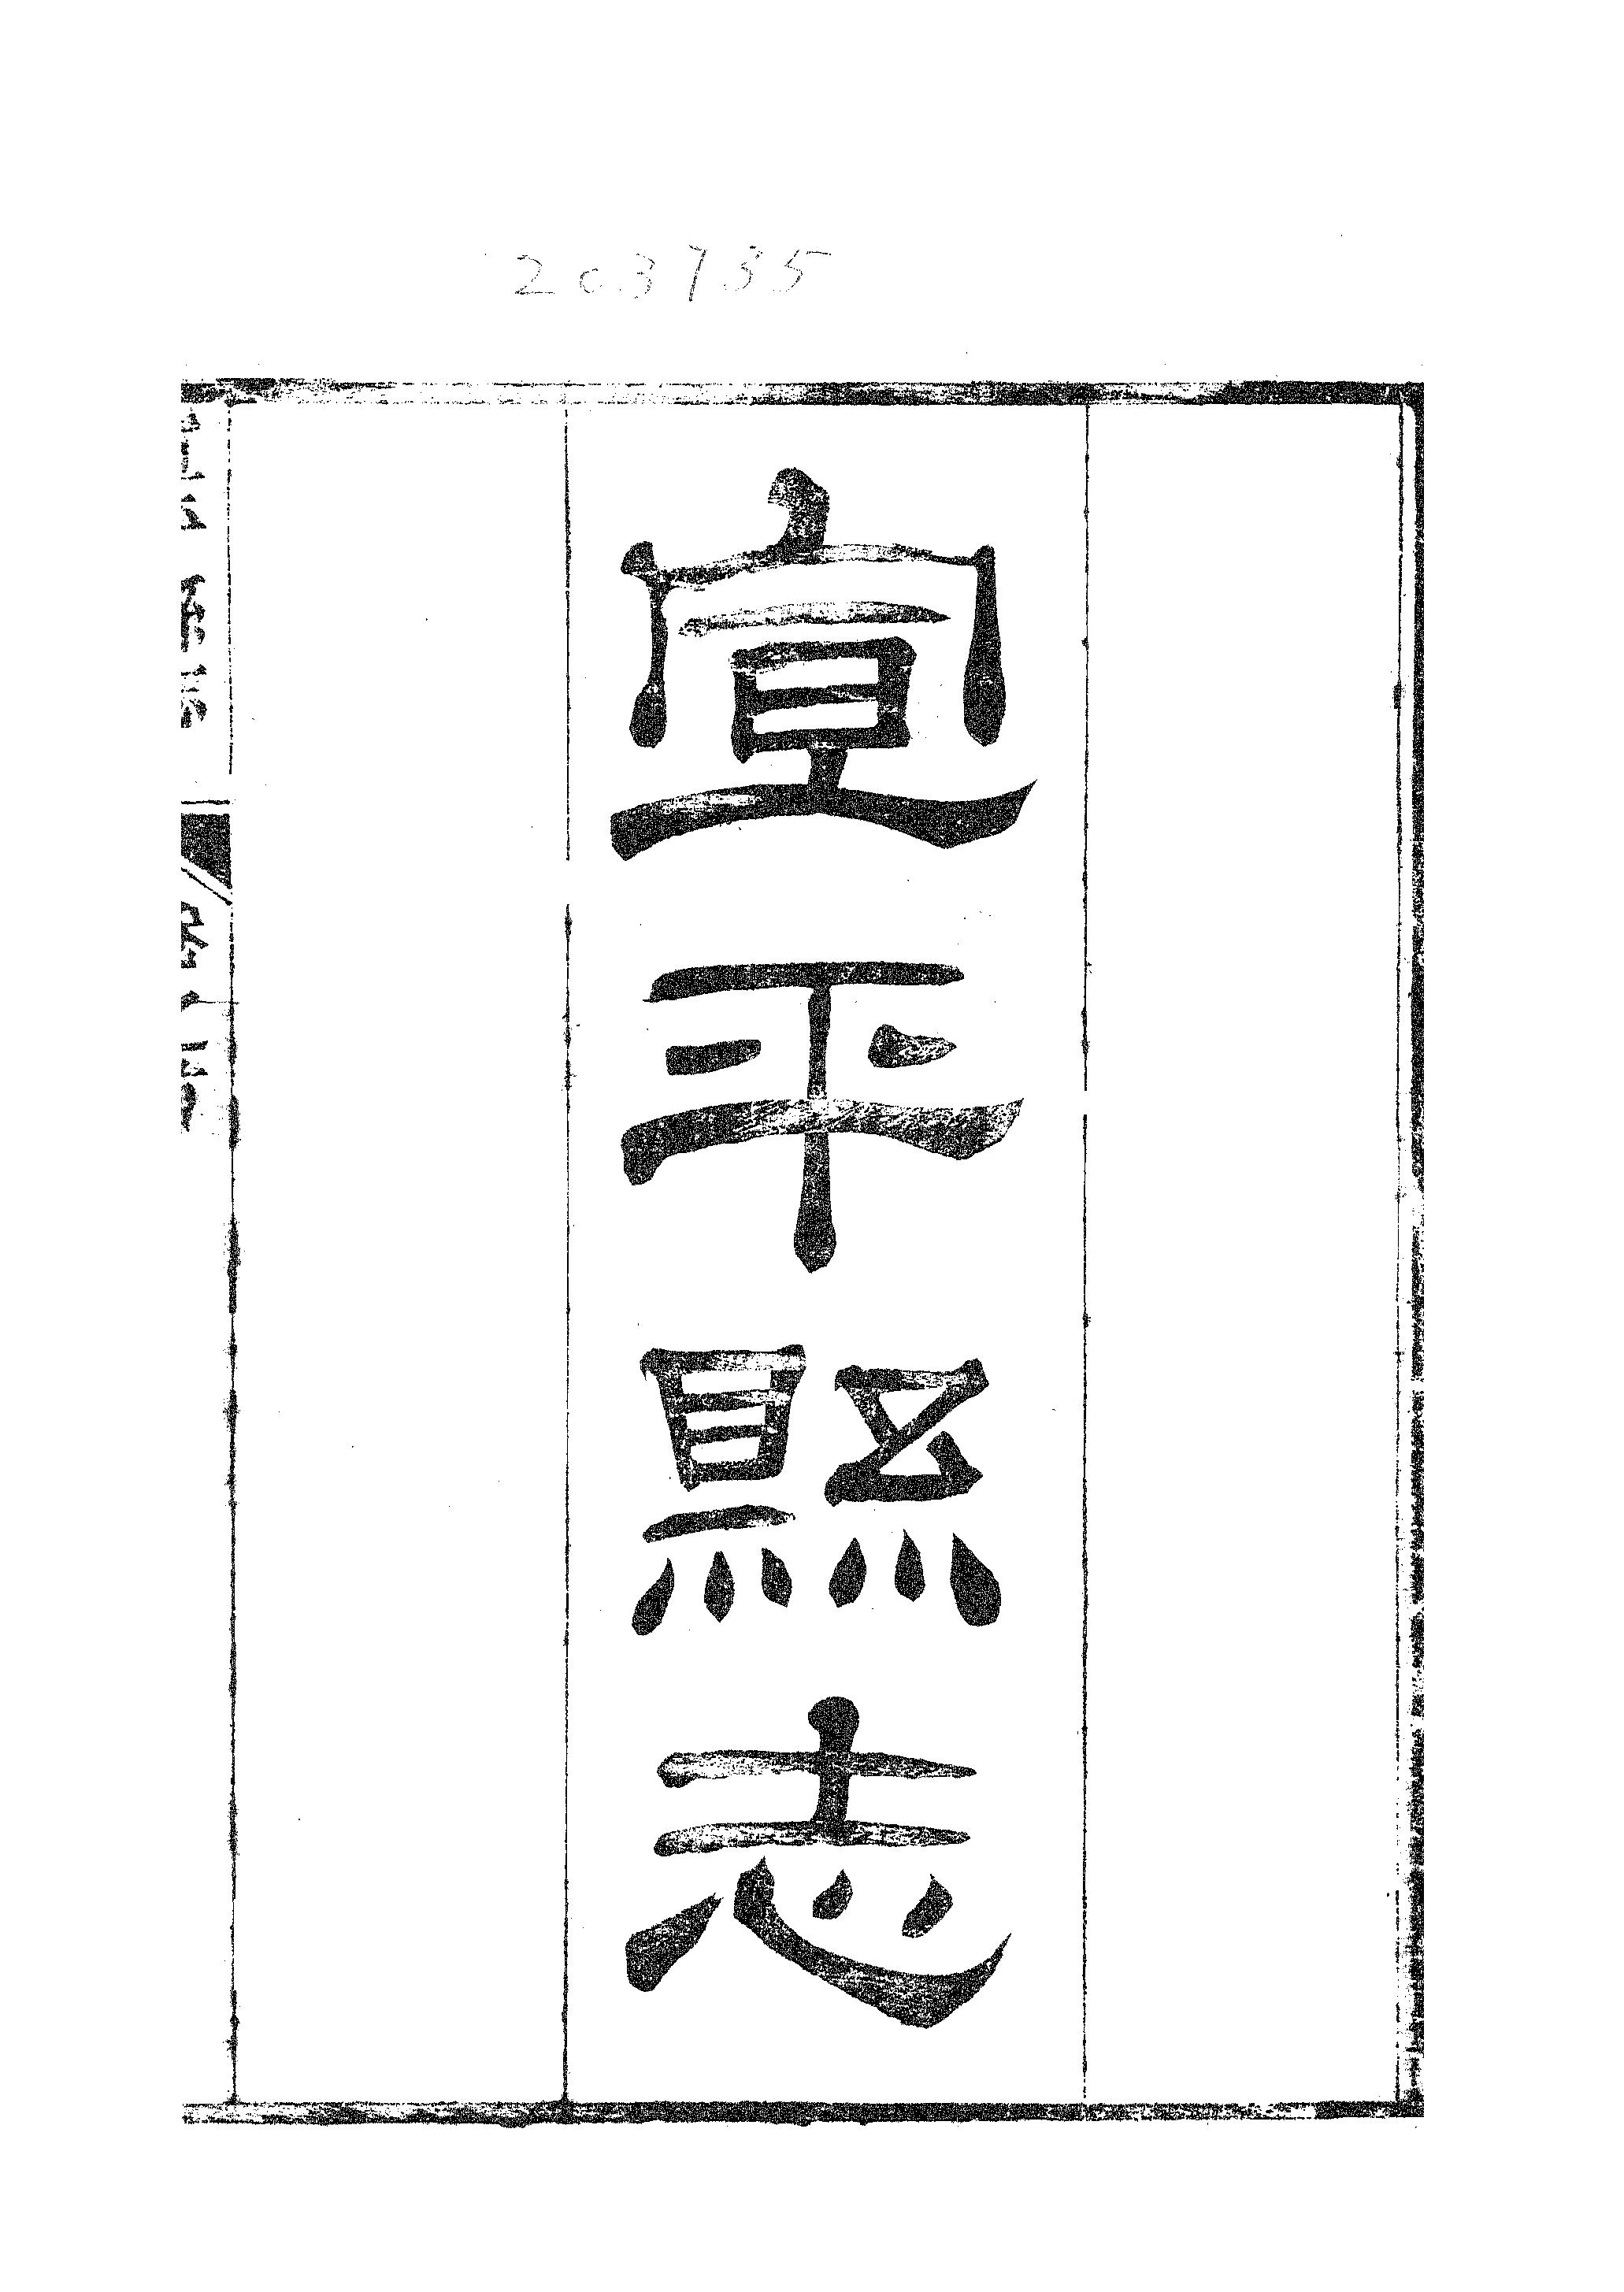 203735
宣平縣志